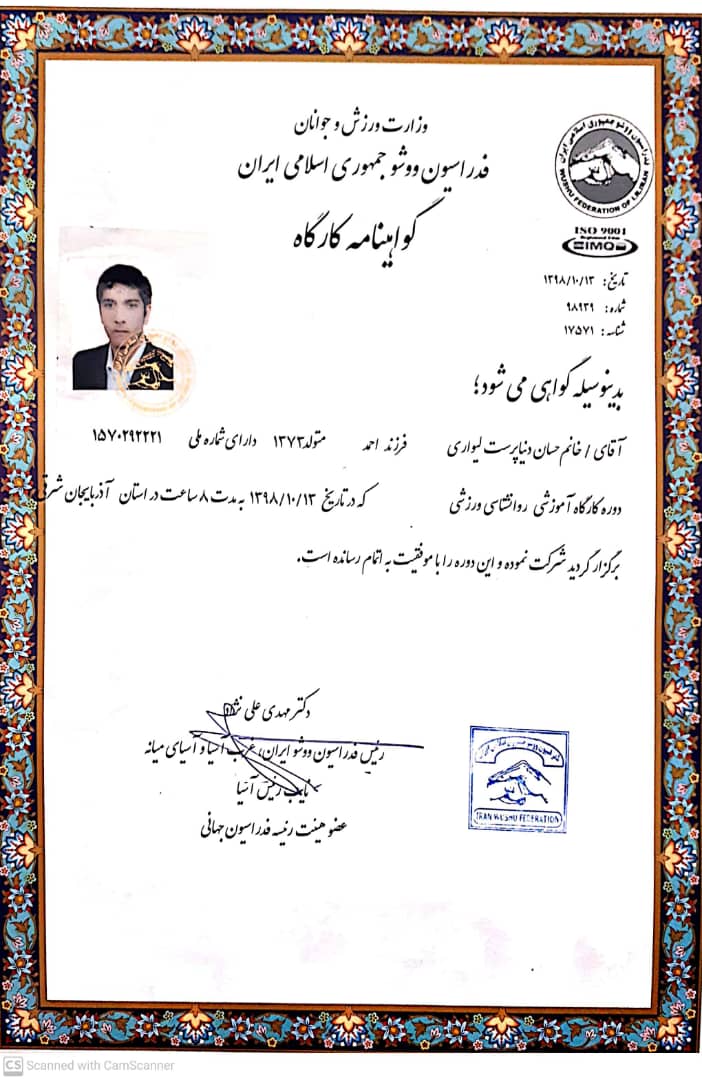 وزارت ورزش و جوانان
فدراسیون ووشو جمهوری اسلامی ایران
گواهینامه کارگاه
فدراسیون ووشو جمهوری اسلامی ایران
WUSHU FEDERATION OF I.R.IRAN
ISO 9001
SIMQS
تاریخ: ۱۳۹۸/۱۰/۱۳
شماره: ۹۸۹۳۹
شناسه: ۱۷۵۷۱
بدینوسیله گواهی می شود؛
آقای / خانم حسان دنیاپرست لیواری فرزند احمد متولد ۱۳۷۳ دارای شماره ملی ۱۵۷۰۲۹۲۲۲۱
دوره کارگاه آموزشی روانشناسی ورزشی که در تاریخ ۱۳۹۸/۱۰/۱۳ به مدت ۸ ساعت در استان آذربایجان شرقی
برگزار گردید شرکت نموده و این دوره را با موفقیت به اتمام رسانده است.
دکتر مهدی علی نژاد
رئیس فدراسیون ووشو ایران، غرب آسیا و آسیای میانه
نایب رئیس آسیا
عضو هیئت رئیسه فدراسیون جهانی
IRAN WUSHU FEDERATION
CS Scanned with CamScanner